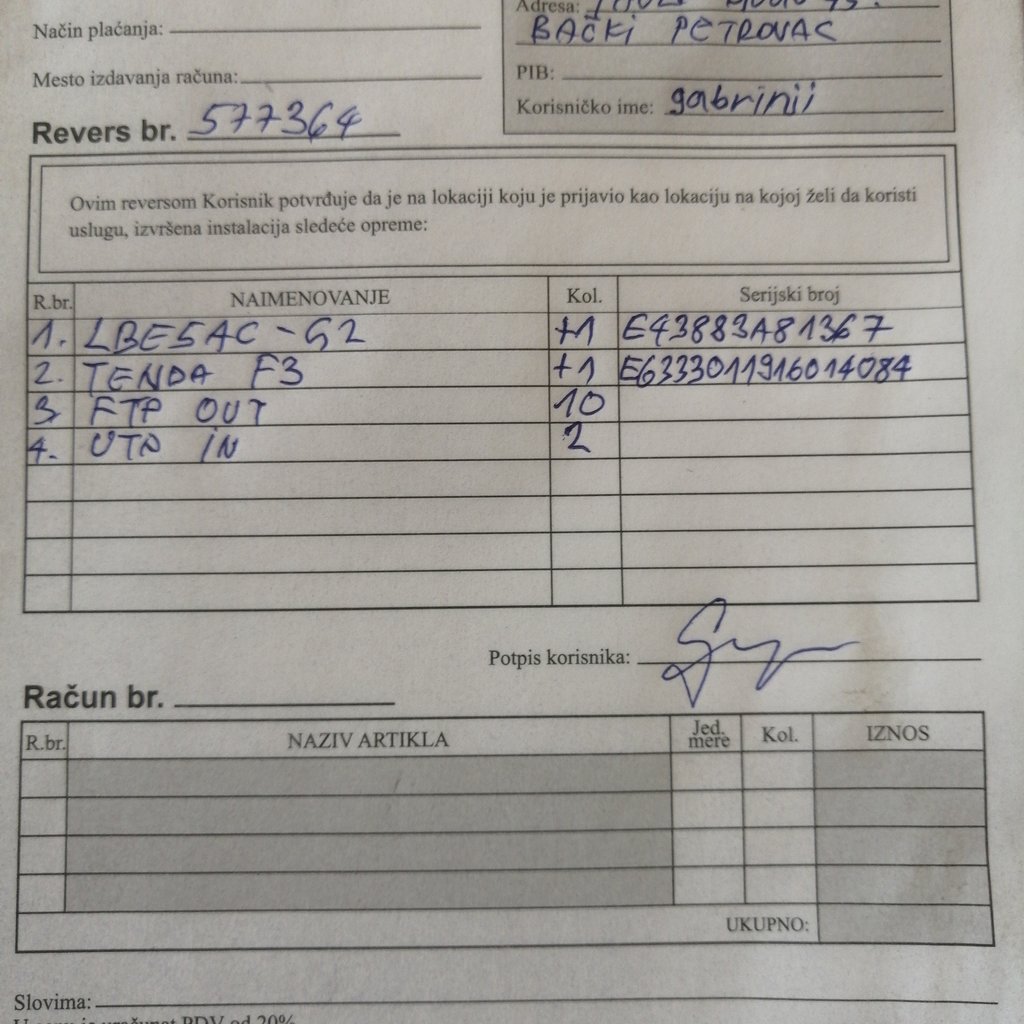 Adresa:
Način plaćanja:
BAČKI PETROVAC
Mesto izdavanja računa:
PIB:
Korisničko ime: gabrinii
Revers br. 577364
Ovim reversom Korisnik potvrđuje da je na lokaciji koju je prijavio kao lokaciju na kojoj želi da koristi
uslugu, izvršena instalacija sledeće opreme:
R.br. NAIMENOVANJE Kol. Serijski broj
1. LBE5AC-G2 +1 E43883A81367
2. TENDA F3 +1 E6333011916014084
3 FTP OUT 10
4. UTP IN 2
Potpis korisnika:
Račun br.
R.br. NAZIV ARTIKLA Jed. mere Kol. IZNOS
UKUPNO:
Slovima:
U cenu je uračunat PDV od 20%